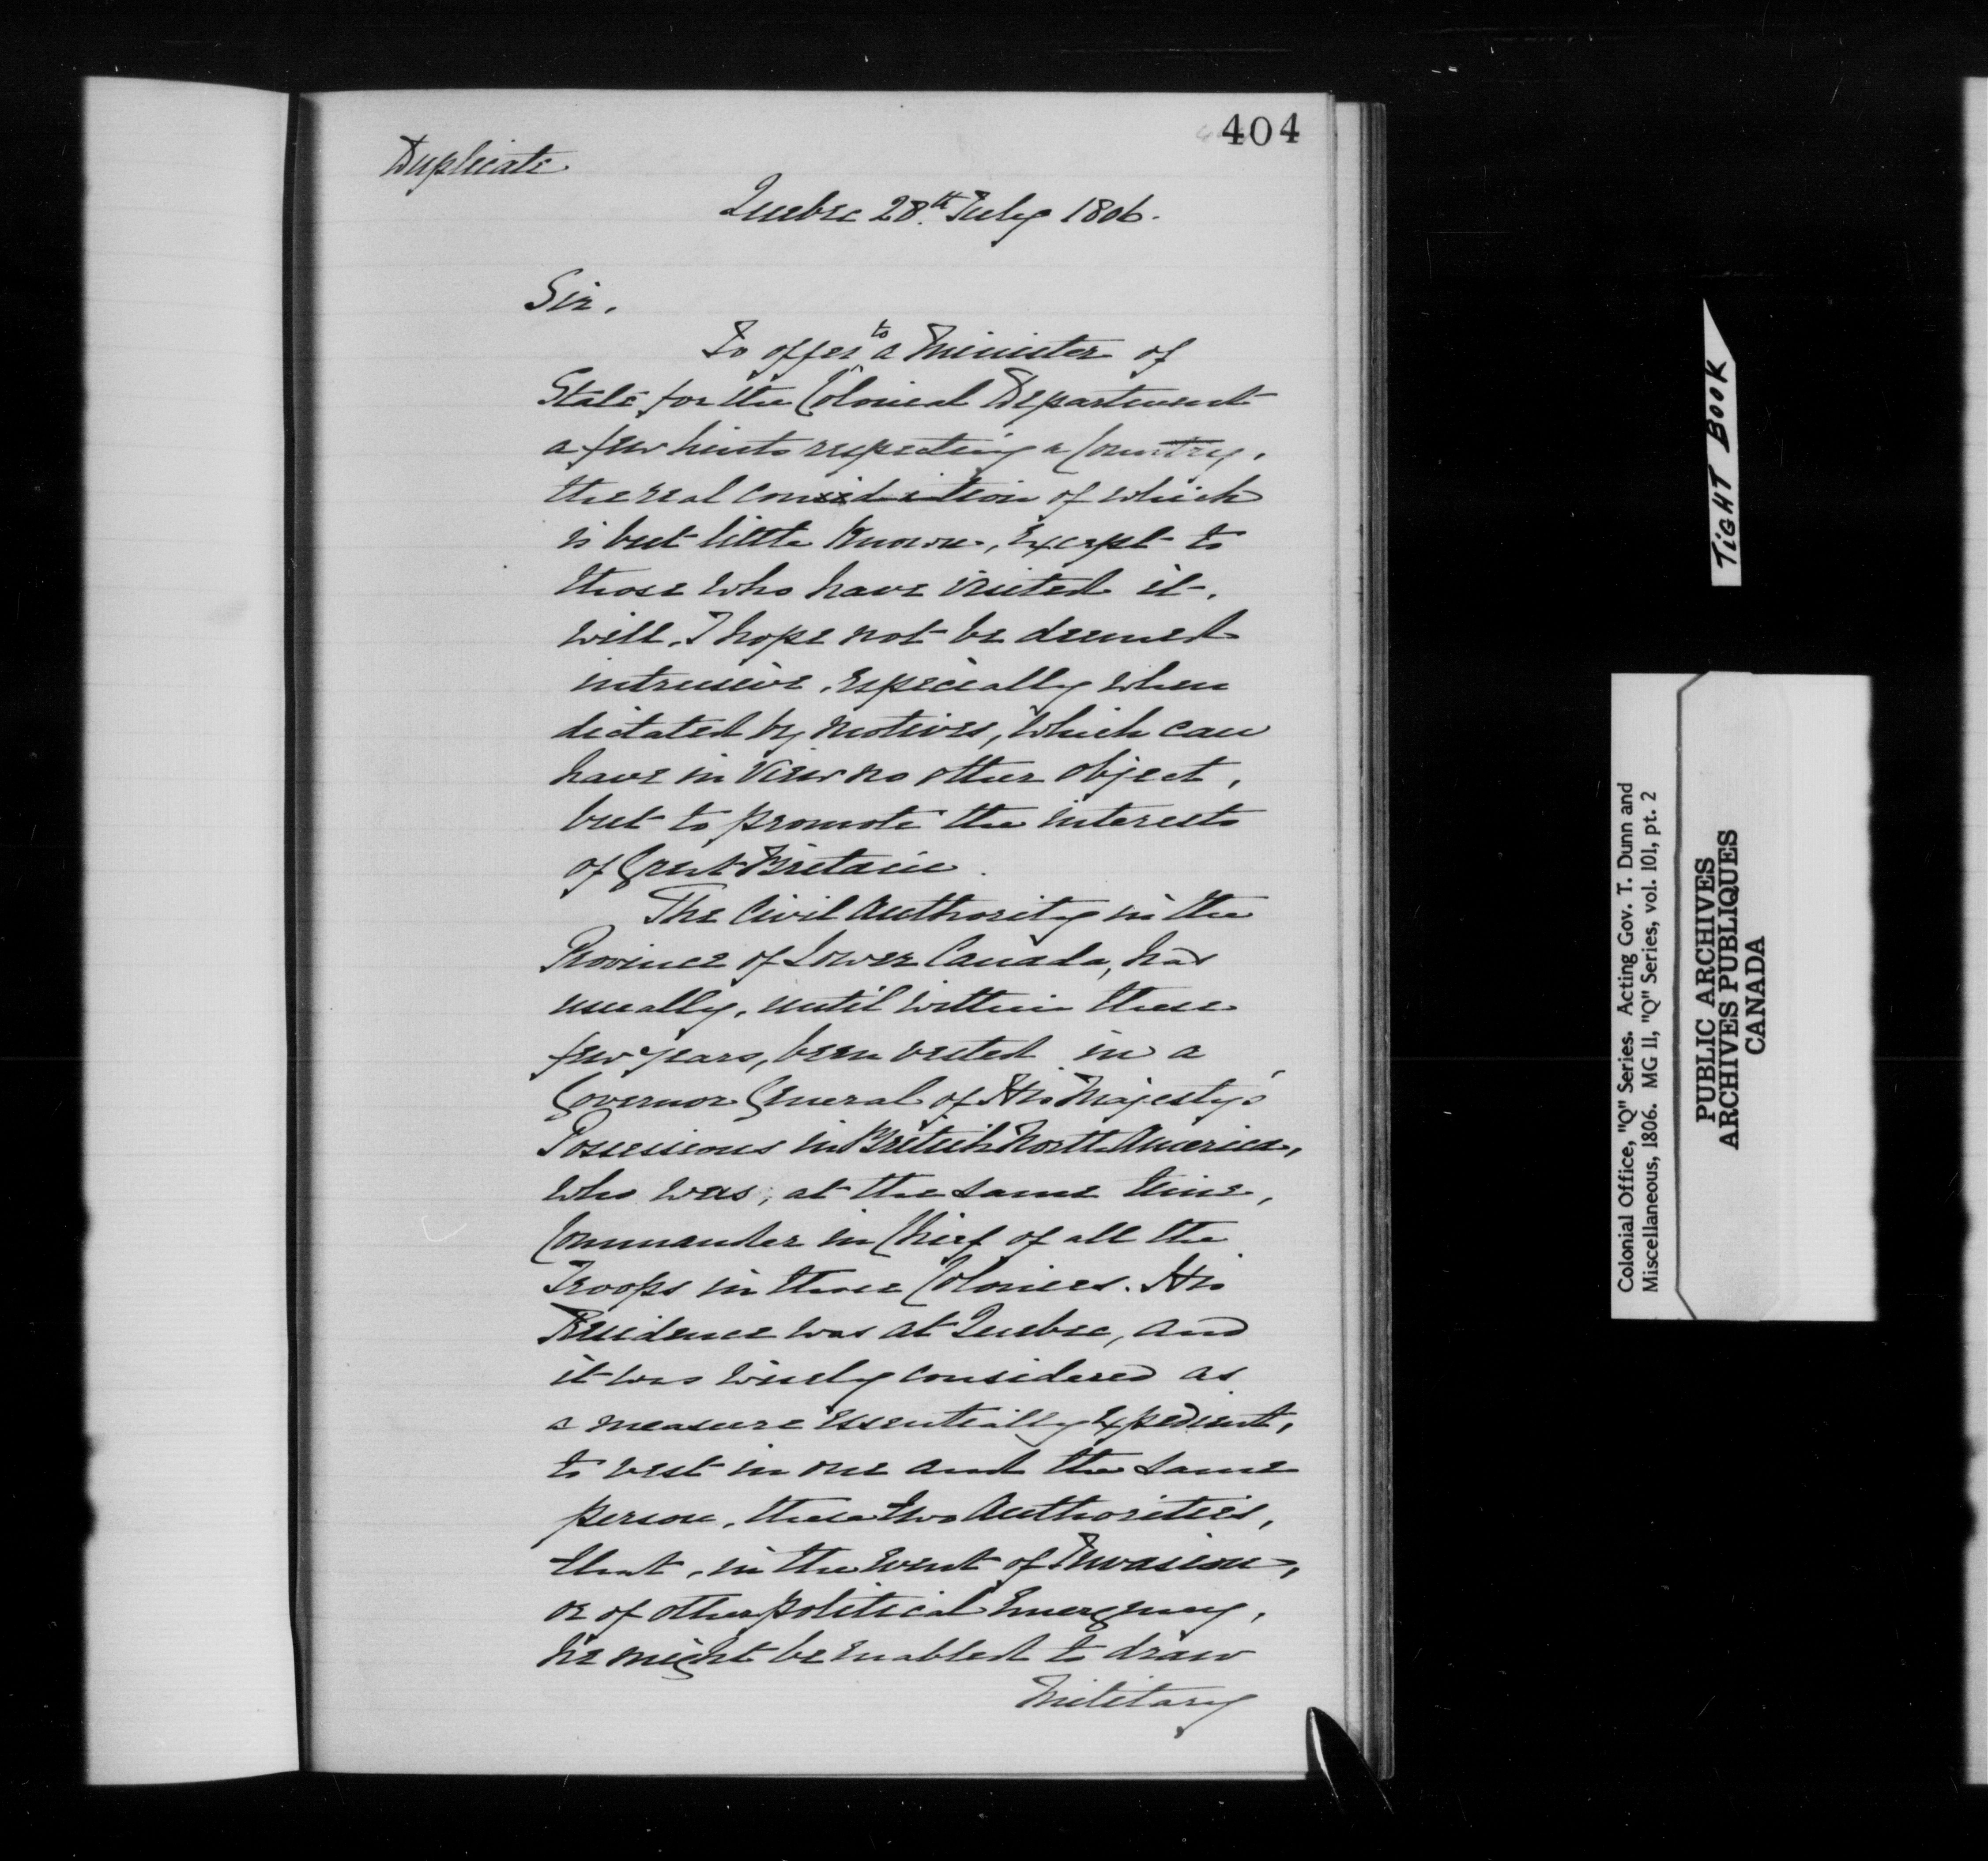 404
Duplicate
Quebec 28.th July 1806.
Sir.
To offer to a Minister of
State for the Colonial Department
a few hints respecting a Country,
the real condition of which
is but little known, Except to
those who have visited it.
will, I hope not be deemed
intrusive, especially when
dictated by motives, which can
have in View no other object,
but to promote the interests
of Great Britain.
The Civil Authority in the
Province of Lower Canada, has
usually, until within these
few years, been vested in a
Governor General of His Majesty's
Possessions in British North America,
who was, at the same time,
Commander in Chief of all the
Troops in those Colonies. His
Residence was at Quebec, and
it was wisely considered as
a measure essentially Expedient,
to vest in one and the same
person, these two Authorities,
that, in the event of Invasion,
or of other political Emergency,
he might be enabled to draw
Military
TIGHT BOOK
Colonial Office, "Q" Series. Acting Gov. T. Dunn and
Miscellaneous, 1806. MG 11, "Q" Series, vol. 101, pt. 2
PUBLIC ARCHIVES
ARCHIVES PUBLIQUES
CANADA